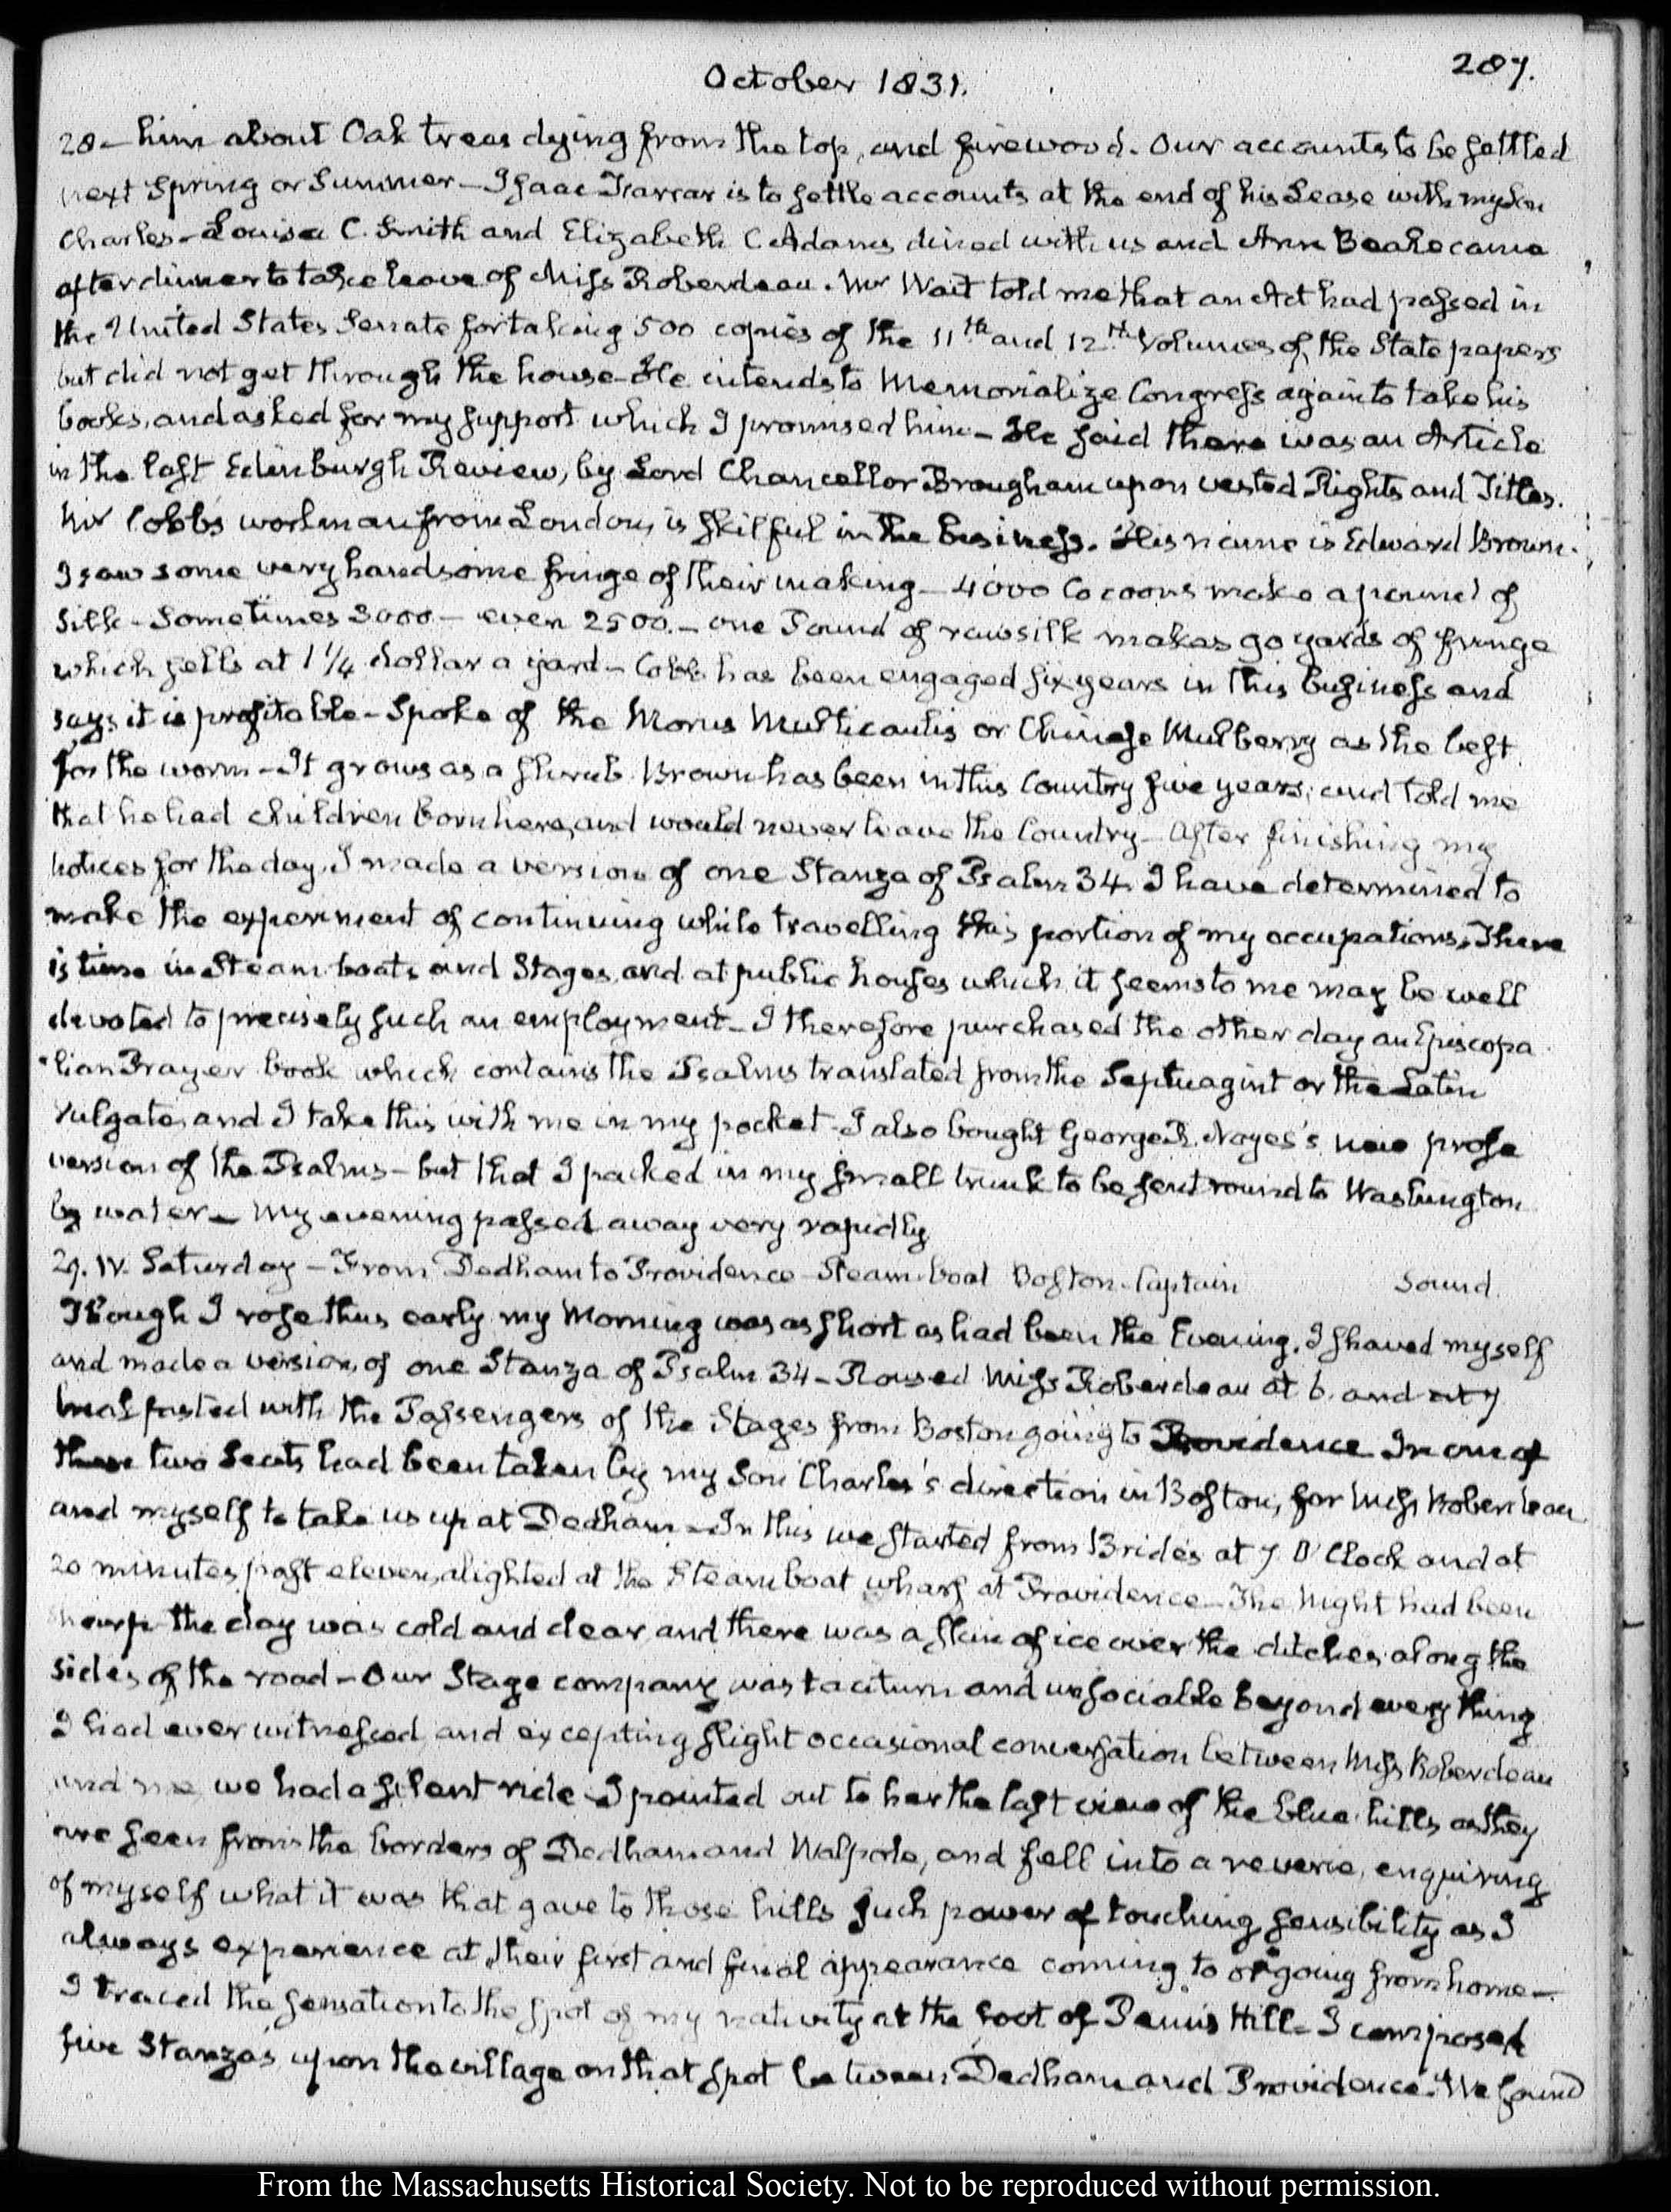 October 1831.
287.
28 - him about Oak trees dying from the top, and firewood. Our accounts to be settled
next Spring or Summer - Isaac Farrar is to settle accounts at the end of his Lease with my Son
Charles - Louisa C. Smith and Elizabeth C. Adams dined with us and Ann Beale came
after dinner to take leave of Miss Roberdeau. Mr Wait told me that an Act had passed in
the United States Senate for taking 500 copies of the 11th and 12th Volumes of the State papers
but did not get through the house - He intends to Memorialize Congress again to take his
books, and asked for my support which I promised him - He said there was an Article
in the last Edinburgh Review, by Lord Chancellor Brougham upon vested Rights and Titles.
Mr Cobb's workman from London, is skilful in the business. His name is Edward Brown.
I saw some very handsome fringe of their making - 4000 Cocoons make a pound of
Silk - Sometimes 3000 - even 2500. - one Pound of raw silk makes 90 yards of fringe
which sells at 1 1/4 dollar a yard - Cobb has been engaged six years in this business and
says it is profitable - Spoke of the Morus Multicaulis or Chinese Mulberry as the best
for the worm - It grows as a shrub. Brown has been in this Country five years; and told me
that he had children born here, and would never leave the Country - After finishing my
notices for the day, I made a version of one Stanza of Psalm 34. I have determined to
make the experiment of continuing while travelling this portion of my occupations. There
is time in Steam-boats and Stages, and at public houses which it seems to me may be well
devoted to precisely such an employment - I therefore purchased the other day an Episcopa
lian Prayer book which contains the Psalms translated from the Septuagint or the Latin
Vulgate, and I take this with me in my pocket - I also bought George R. Noyes's new prose
version of the Psalms - but that I packed in my small trunk to be sent round to Washington
by water - My evening passed away very rapidly
29. IV. Saturday - From Dedham to Providence - Steam-boat Boston - Captain Sound.
Though I rose thus early my Morning was as short as had been the Evening. I shaved myself
and made a version of one Stanza of Psalm 34 - Roused Miss Roberdeau at 6. and at 7
breakfasted with the Passengers of the Stages from Boston going to Providence In one of
them two Seats had been taken by my Son Charles's direction in Boston, for Miss Roberdeau
and myself to take us up at Dedham - In this we started from Bride's at 7 O'Clock and at
20 minutes past eleven, alighted at the Steam boat wharf at Providence - The Night had been
sharp the day was cold and clear, and there was a skin of ice over the ditches along the
sides of the road - Our Stage company was taciturn and unsociable beyond every thing
I had ever witnessed, and excepting slight occasional conversation between Miss Roberdeau
and me we had a silent ride - I pointed out to her the last view of the blue hills as they
are seen from the borders of Dedham and Walpole, and fell into a reverie, enquiring
of myself what it was that gave to those hills such power of touching sensibility as I
always experience at their first and final appearance coming to or going from home -
I traced the sensation to the spot of my nativity at the foot of Penn's Hill - I composed
five Stanza's upon the village on that spot between Dedham and Providence. We found
From the Massachusetts Historical Society. Not to be reproduced without permission.